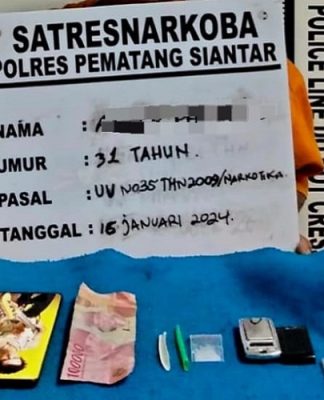 SATRESNARKOBA
POLRES PEMATANG SIANTAR
NAMA :
UMUR : 31 TAHUN.
PASAL : UU NO35 THN2009/NARKOTIKA
TANGGAL : 16 JANUARI 2024.
POLICE LINE
100000